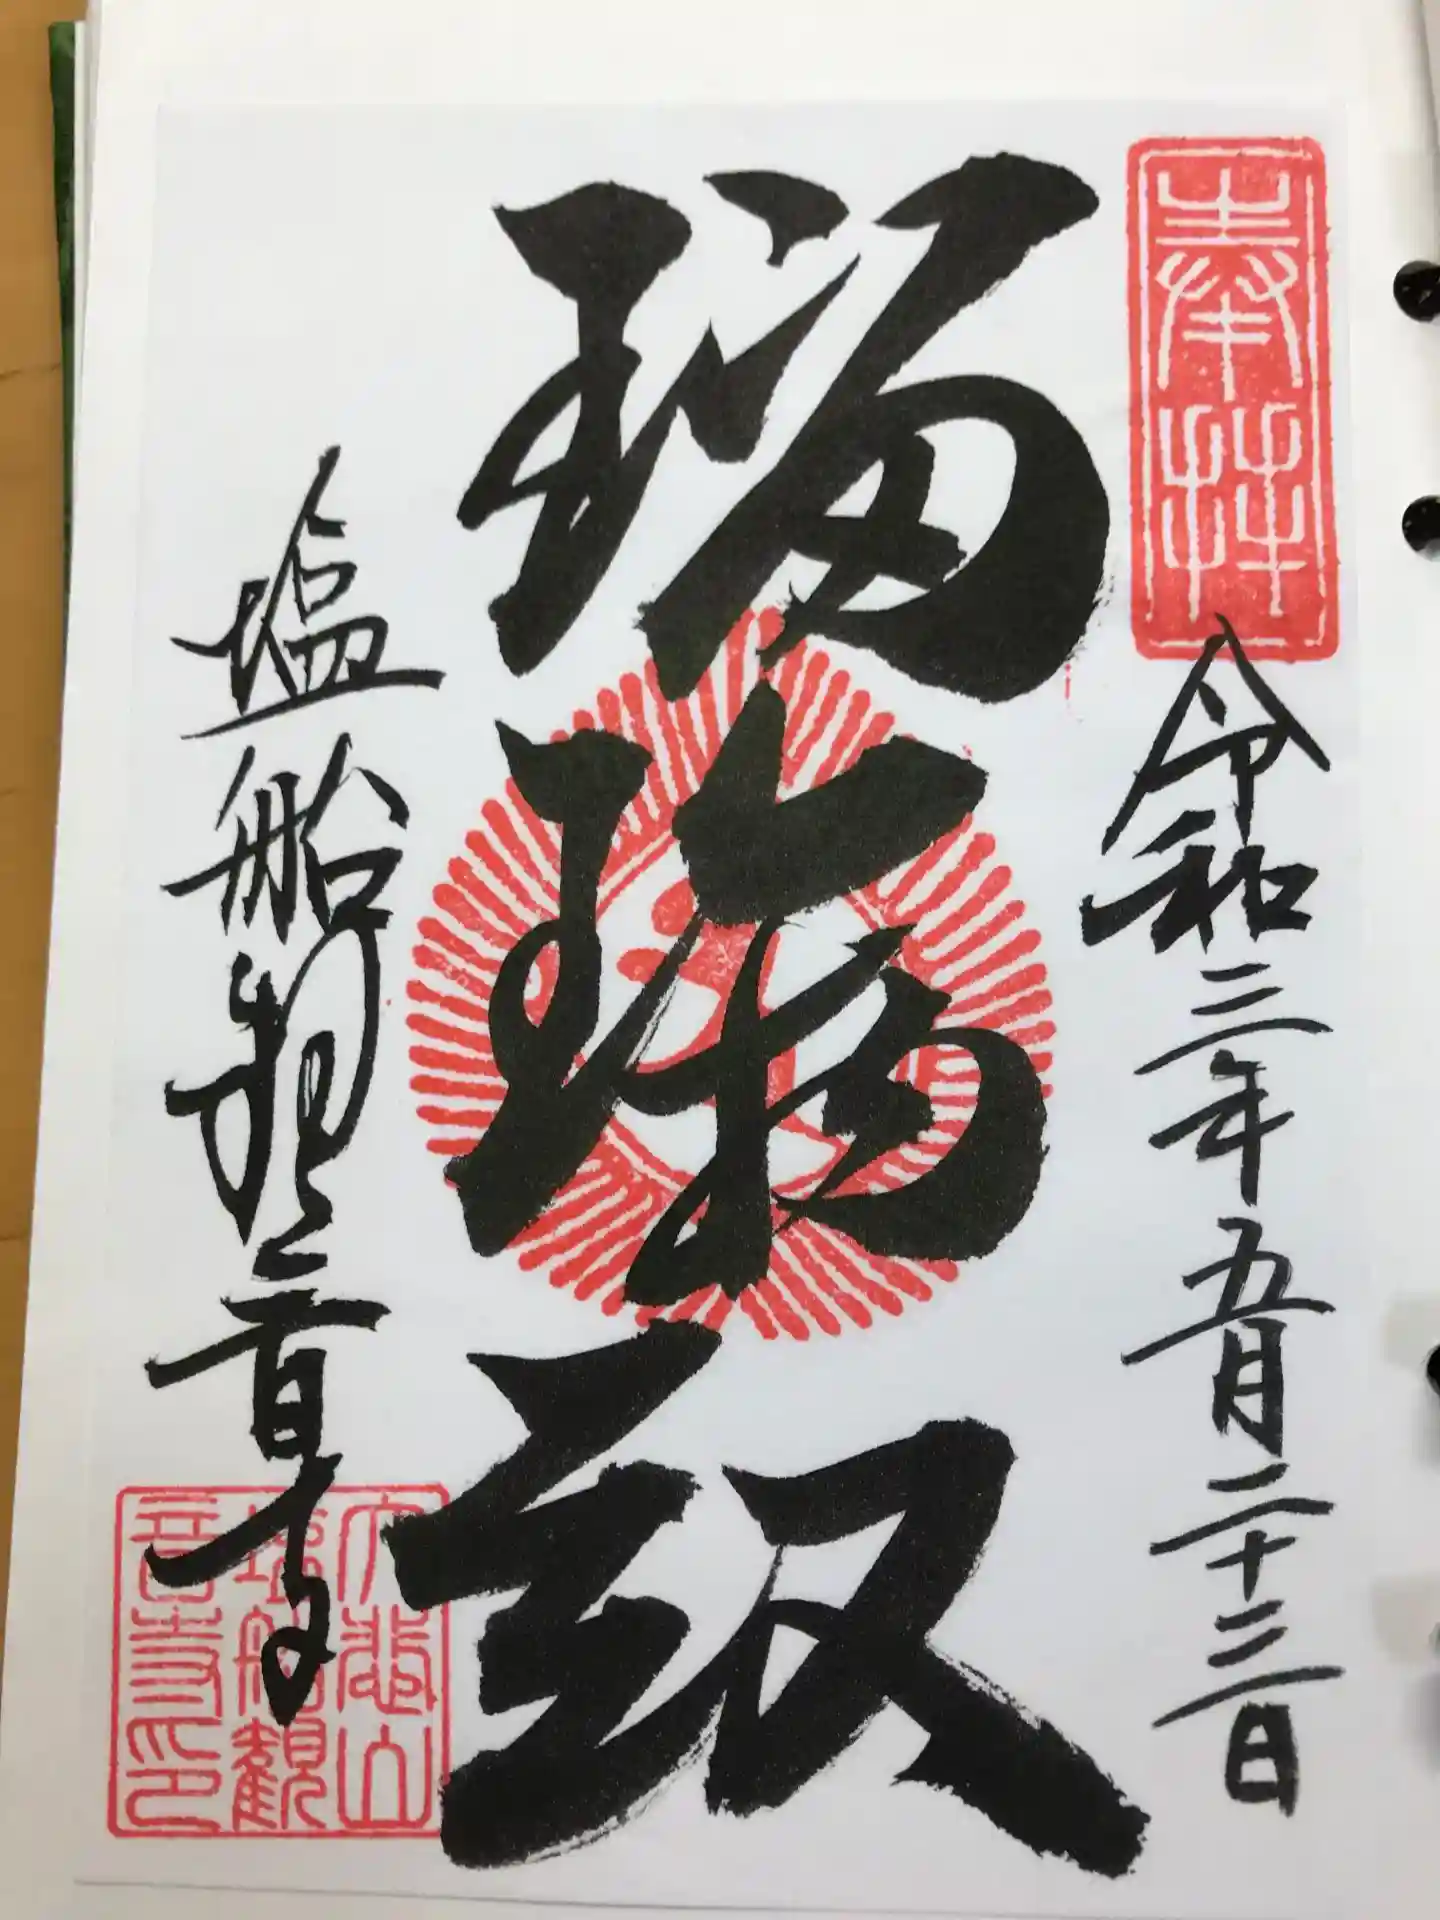 奉拝
令和三年五月二十三日
瑠璃殿
塩船観音寺
大悲山
塩船観
音寺印